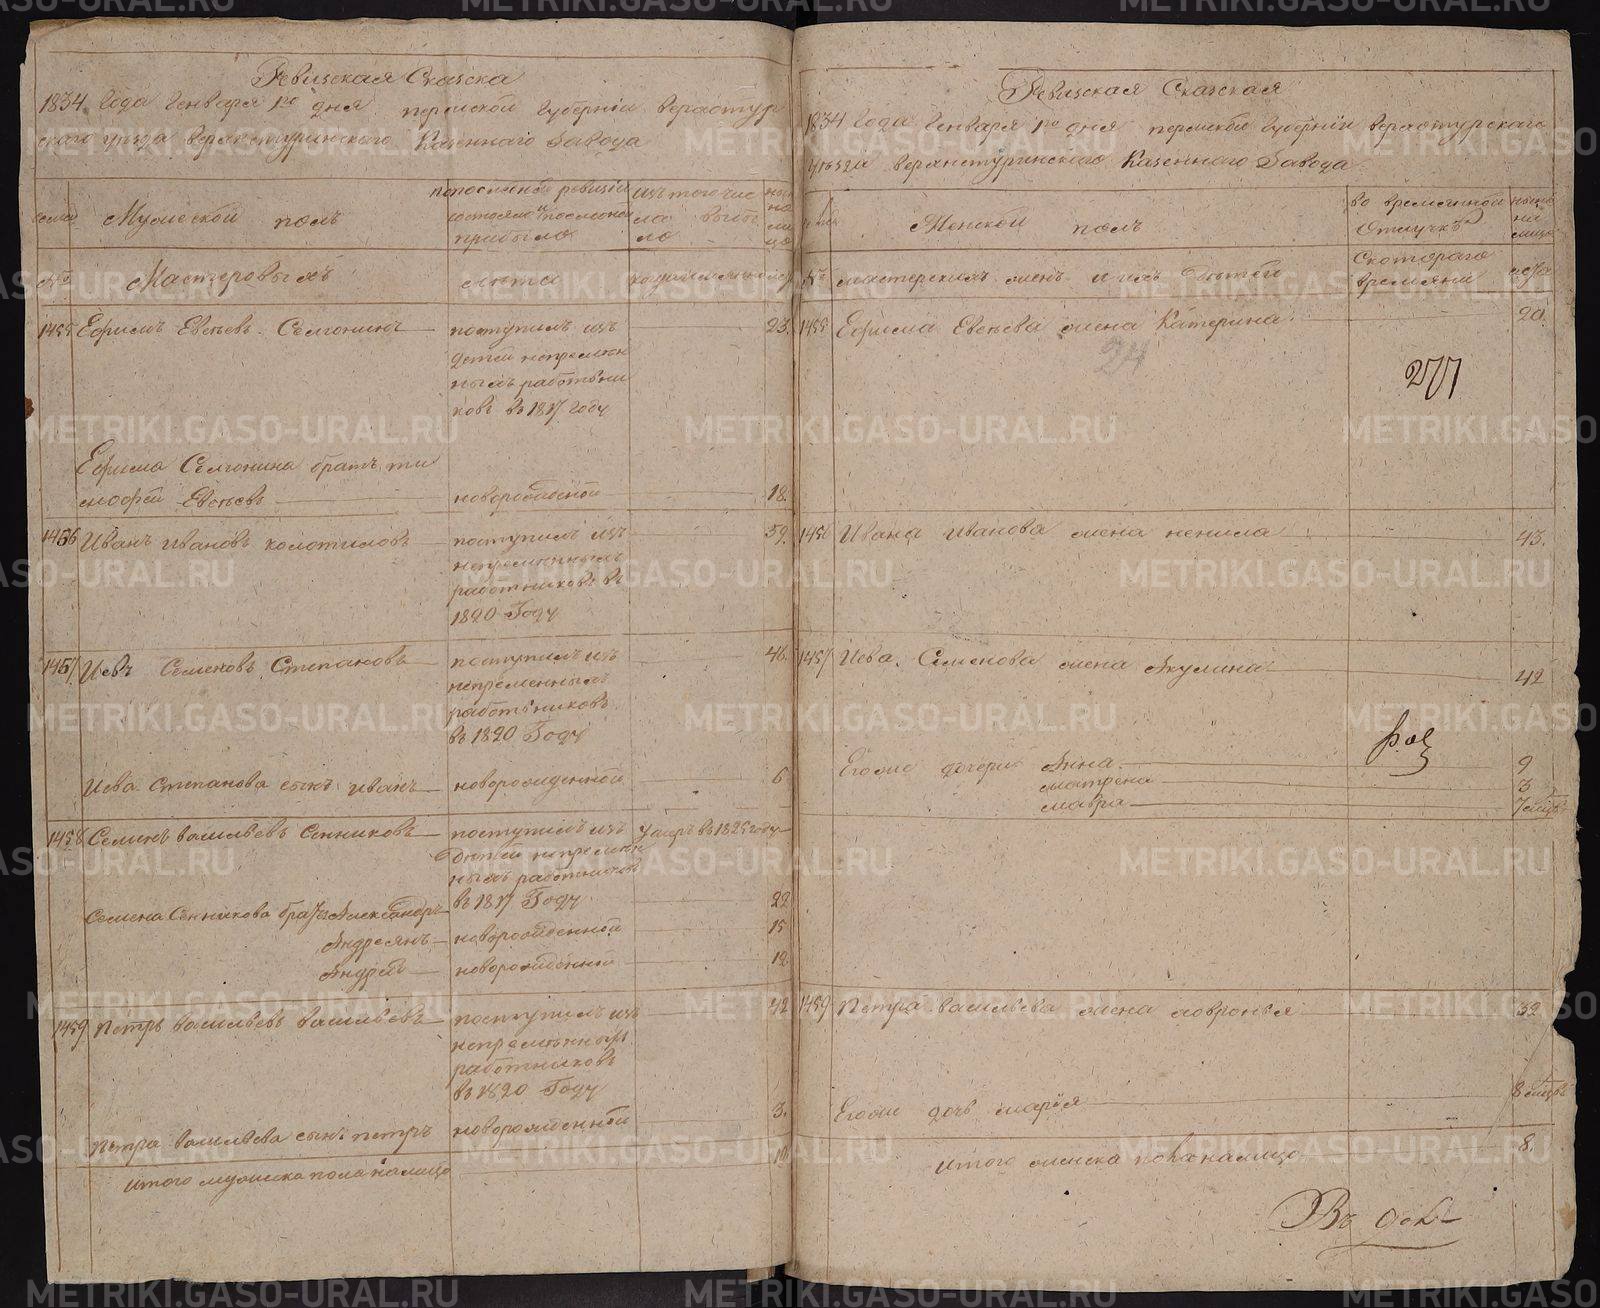 Ревизская Сказка
1834 Года Генваря 1го дня пермской Губернiи верхотур
скаго уезда верхнетуринскаго Казеннаго Завода
Мужеской полъ
по последней ревизiи
состояло и после оной
прибыло
изъ того чис
ла выбы
ло
ныне
на
ли
цо
№
Мастеровыхъ
лета
когда именно
1455 Ефимъ Евсеевъ Семгонинъ
поступилъ изъ
детей непремен
ныхъ работни
ковъ въ 1817 году
23.
Ефима Семгонина братъ ти
мофей Евсеевъ
новорожденой
18.
1456 Иванъ Ивановъ колотиловъ
поступилъ изъ
непременныхъ
работниковъ въ
1820 Году
59.
1457 Иевъ Семеновъ Степановъ
поступилъ изъ
непременныхъ
работниковъ
въ 1820 Году
46.
Иева Степанова сынъ иванъ
новорожденной
6
1458 Семенъ васильевъ Сенниковъ
поступилъ изъ
детей непремен
ныхъ работниковъ
въ 1817 Году
умеръ въ 1825 году
Семена Сенникова братья Александръ
22
Андреянъ
новорожденной
15
Андрей
новорожденной
12
1459 Петръ васильевъ васильевъ
поступилъ изъ
непременныхъ
работниковъ
въ 1820 Году
42
Петра васильева сынъ петръ
новорожденной
3.
итого мужеска пола налицо
10.
Ревизская Сказская
1834 Года Генваря 1го дня пермской Губернiи верхотурскаго
уезда верхнетуринскаго Казеннаго Завода
Женской полъ
во временной
Отлучке
ныне
на
лицо
№
мастерскихъ женъ и ихъ детей
Скотораго
времяни
лета
1455 Ефима Евсеева жена Катерина
20.
24
277
1456 Ивана Иванова жена ненила
43.
1457 Иева Семенова жена Акулина
42
Егожъ дочери Анна
9
матрена
3
мавра
7 месцъ
1459 Петра васильева жена ховронья
32
Егожъ дочь марiя
8 месцъ
итого женска пола налицо
8.
METRIKI.GASO-URAL.RU